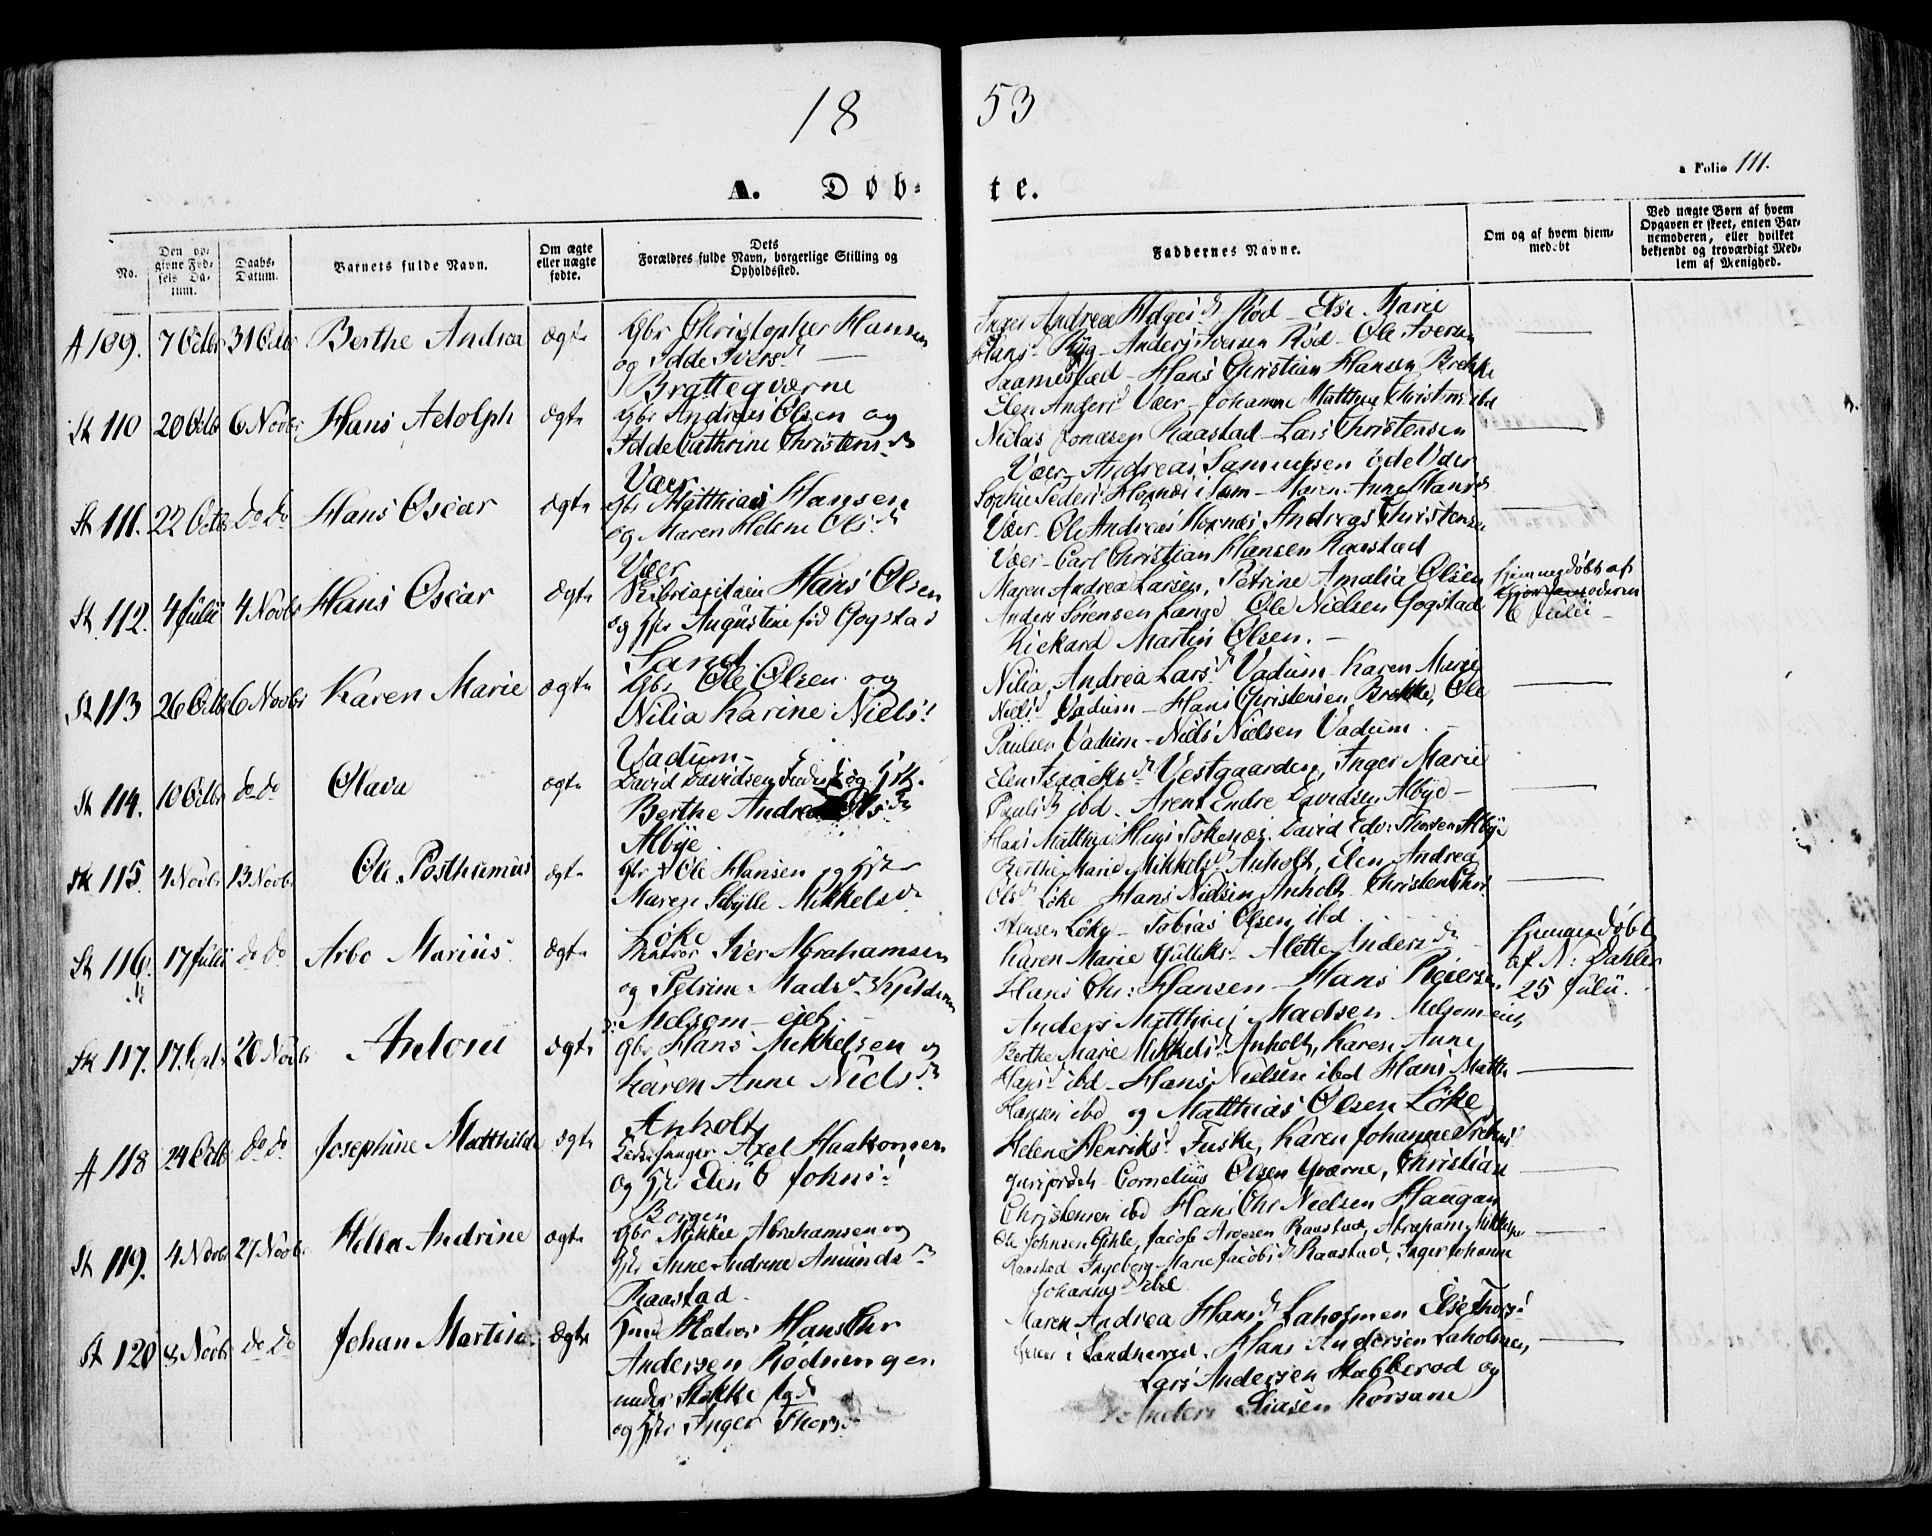 18 53
a Folio 111.
A. Døb- te.
No.
Den opgivne Fødsels Datum.
Daabs-Datum.
Barnets fulde Navn.
Om ægte eller uægte fødte.
Dets Forældres fulde Navn, borgerlige Stilling og Opholdssted.
Faddernes Navne.
Om og af hvem hjemmedøbt
Ved uægte Børn af hvem Opgaven er skeet, enten Barnemoderen, eller hvilket bekjendt og troværdigt Medlem af Menighed.
A 109. 7 Octbr 31 Octbr Berthe Andrea ægte
Gbr Christopher Hansen
og Idde Ivers
Brattegværne
Inger Andrea Helges Rød - Else Marie
Hans Ryg - Anders Iversen Rød - Ole Iversen
Saamestad - Hans Christian Hansen Brekke
St 110 20 Octbr 6 Novbr Hans Adolph ægte
Gbr Andreas Olsen og
Idde Cathrine Christens
Vær
Elen Anders Vær - Johanne Matthea Christens ibd
Niclas Jonasen Raastad - Lars Christensen
Vær, Andreas Samuelsen øde Vær
St 111. 22 Octbr do do Hans Oscar ægte
Gbr Matthias Hansen
og Maren Helene Ols
Vær
Sophie Peders Hoxnæs i Sem - Maren Anne Hans
Vær - Ole Andreas Hoxnæs, Andreas Christensen
Vær - Carl Christian Hansen Raastad
St 112. 4 Julii 4 Novbr Hans Oscar ægte
Skibscapitain Hans Olsen
og Hst Augustine fød Gogstad
Sand.
Maren Andrea Larsen, Petrine Amalia Olsen
Anders Sørensen Lange Ole Nielsen Gogstad
Rickard Martin Olsen. -
hjemmedøbt af
6 Julii -
St 113 26 Octbr 6 Novbr Karen Marie ægte
Gbr Ole Olsen og
Nilia Karine Niels
Vadum -
Nilia, Andrea Lars Vadum - Karen Marie
Niels Vadum - Hans Christensen Brekke, Ole
Paulsen Vadum - Niels Nielsen Vadum.
St 114. 10 Octbr do do Olava ægte
David Davidsen og
Berthe Andrea Ols
Albye.
Elen Isacks Vestgaarden, Inger Marie
Pauls ibd. Arent Endre Davidsen Albye -
Hans Matthias Hans David Edv: Thorsen Albye
St 115. 4 Novbr 13 Novbr Ole Posthumus ægte
Gbr Ole Hansen og
Maren Sibylle Mikkels
Løke
Berthe Marie Mikkels Anholt, Elen Andrea
Ols Løke Hans Nielsen Anholt. Christen Chri
Hensen Løke - Tobias Olsen ibd.
St 116. 17 Julii do do Arbo Marius. ægte
Matros Iver Abrahamsen
og Petrine Mads
Melsom - eiet.
Karen Marie Gulliks - Mette Anders
Hans Chr: Hansen - Hans Reiersen
Anders Matthias Madsen Melsom eiet
hjemmedøbt
af N: Dahler
25 Julii.
St 117. 17. Septbr 20 Novbr Antoni ægte
Gbr Hans Mikkelsen og
Karen Anne Niels
Anholt
Berthe Marie Mikkels Anholt, Karen Anne
Hans ibd - Hans Nielsen ibd Hans Matth
Hansen ibd og Matthias Olsen Løke
A 118 24 Octbr do do Josephine Matthilde ægte
Axel Haakonsen
og Elen Johns
Borgen
Helene Henriks Fuske, Karen Johanne
Cornelius Olsen Qværne, Christian
Christensen ibd Hans Chr Nielsen Haugan
St 119. 4 Novbr 27 Novbr Hella Andrine ægte
Gbr Mikkel Abrahamsen og
Anne Andrine Amunds
Raastad.
Ole Johnsen Gihle, Jacob Aresen Raastad, Abraham Mikkelsen
Raastad Ingeborg Marie Jacobs Raastad, Inger Johanne
Johannes ibd
St 120 8 Novbr do do Johan Martin. ægte
Matros Hans Chr
Andersen Rødningen
under Stokke
og Inger Thors
Maren Andrea Hans Laholmen Else Thors
i Sandherred. Hans Andersen Laholmen,
Lars Andersen Stubberød og
Anders Eliasen Korsane